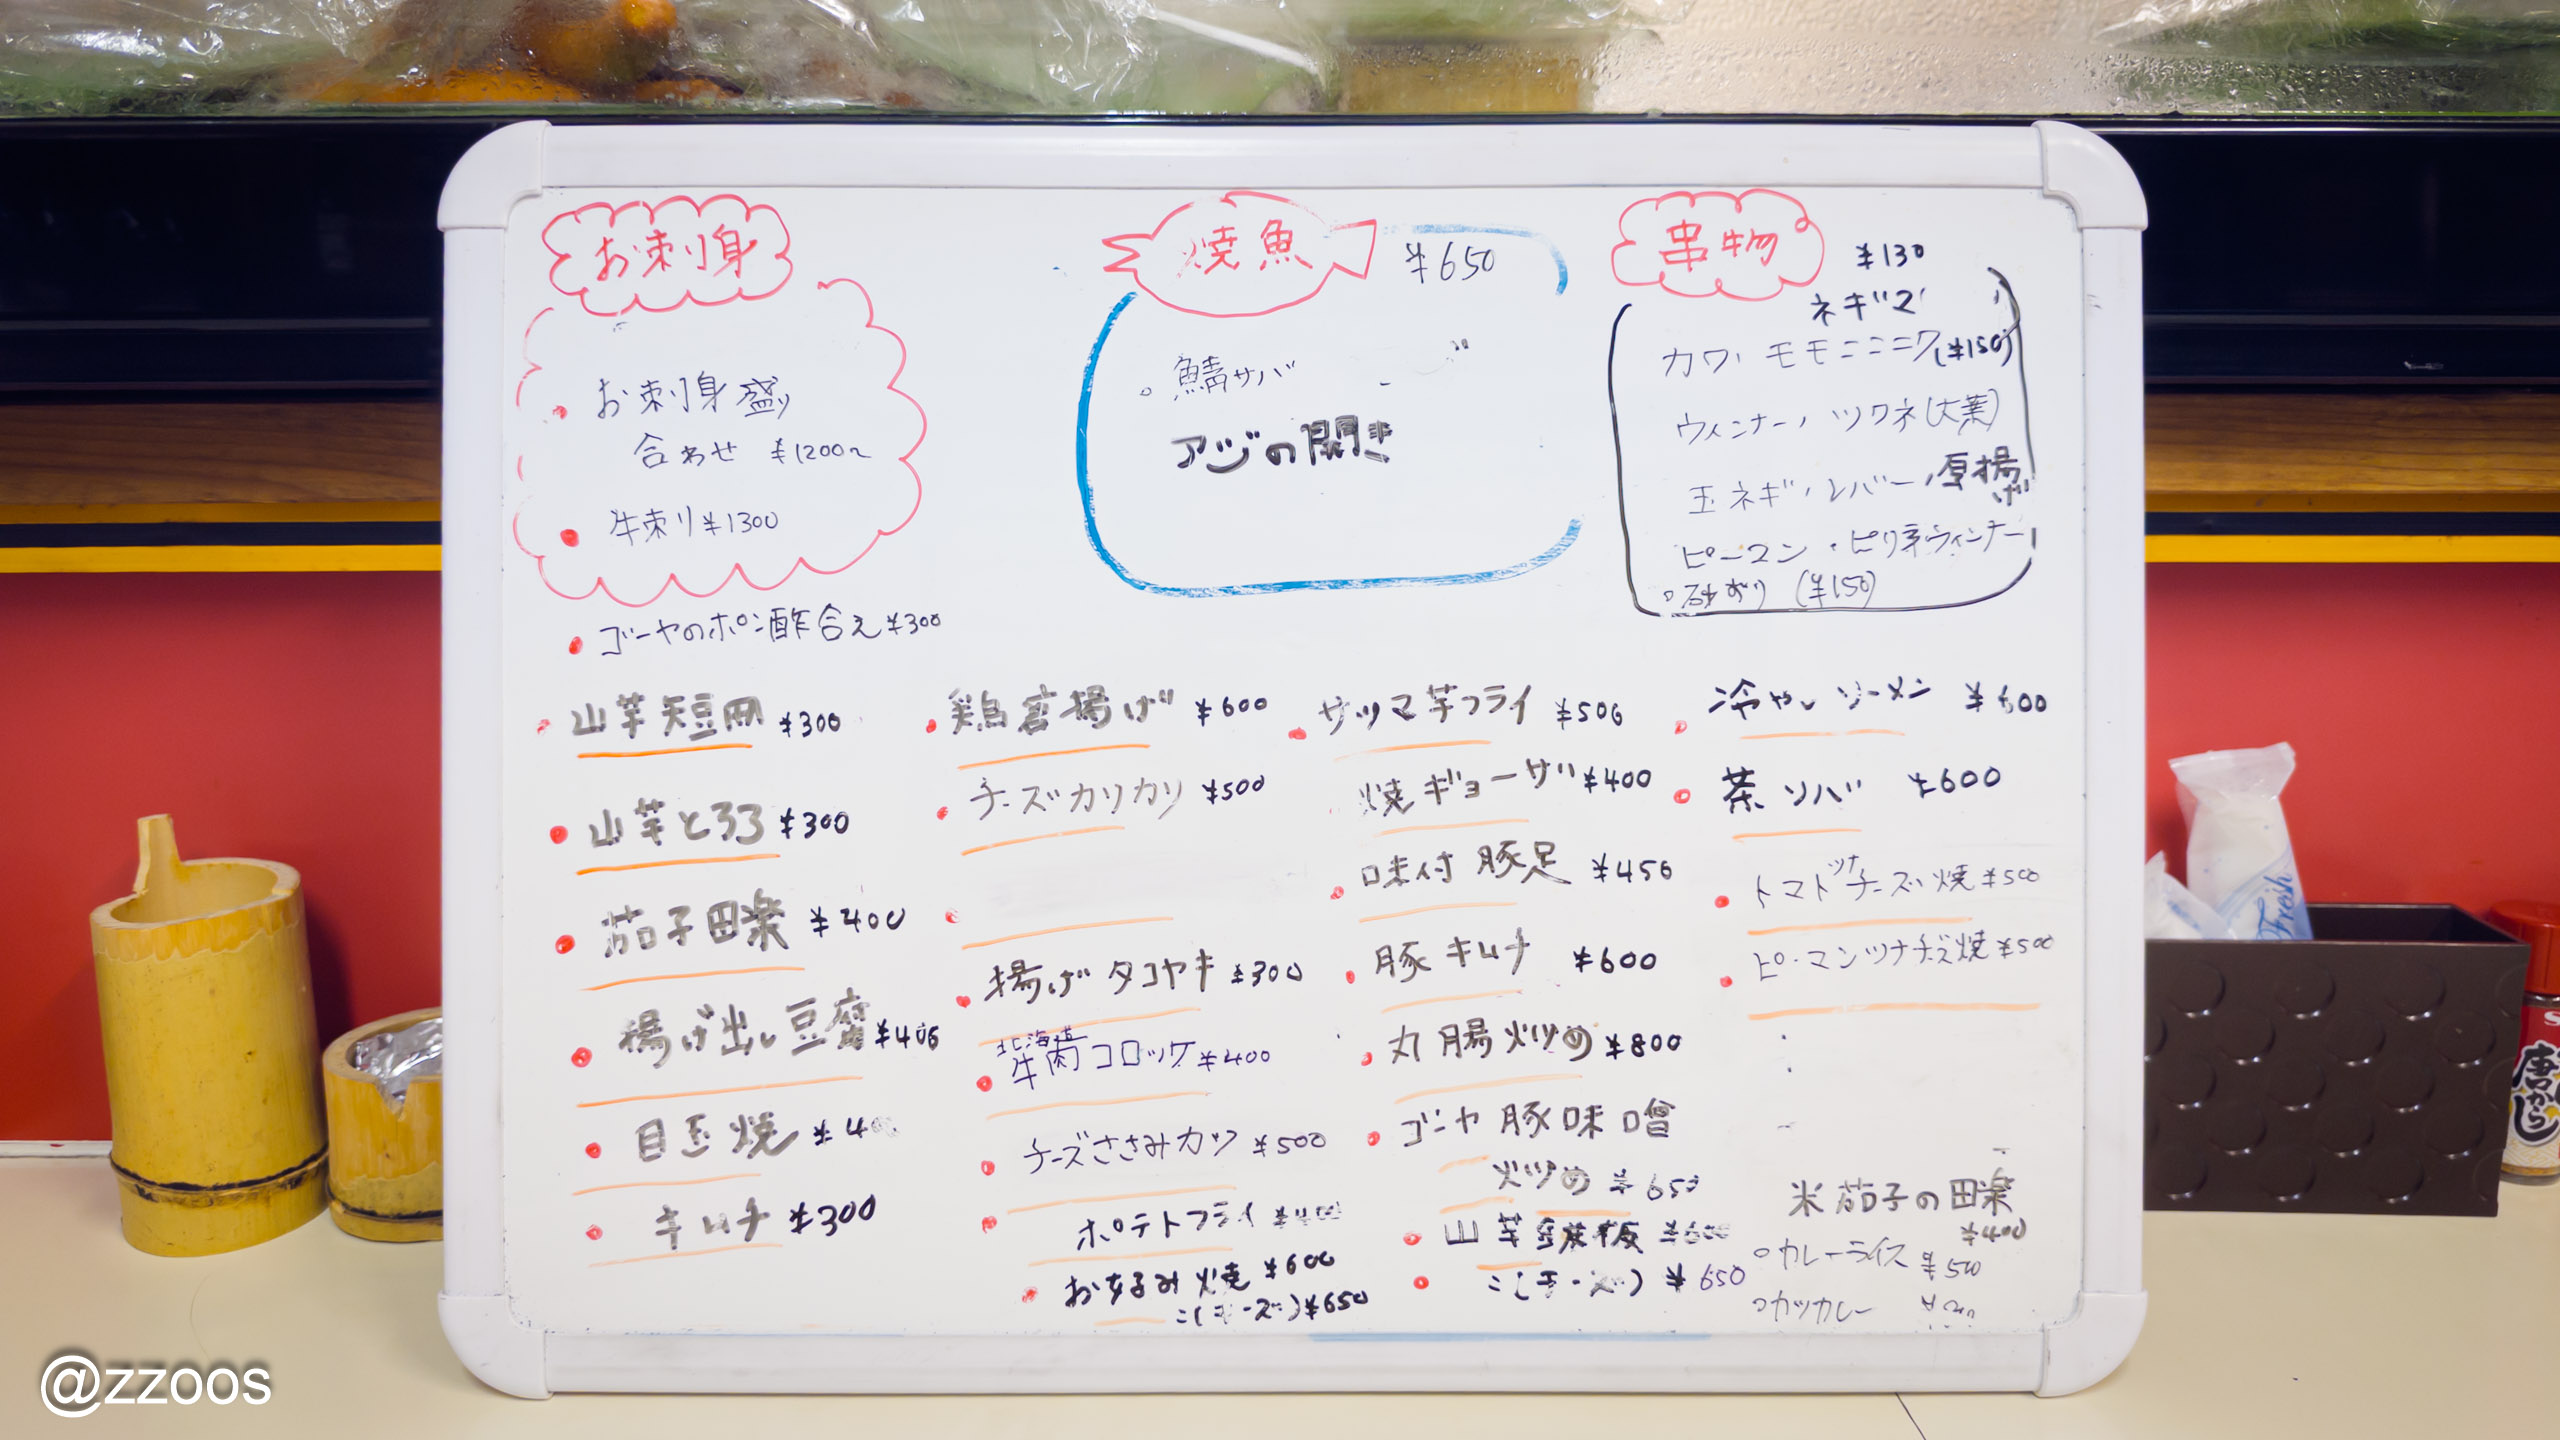 お刺身
お刺身盛り
合わせ ¥1200〜
牛刺り ¥1300
焼魚 ¥650
鯖サバ
アジの開き
串物 ¥130
ネギマ
カワ・モモニニニク(¥150)
ウィンナー・ツクネ(大葉)
玉ネギ・レバー・厚揚げ
ピーマン・ピリ辛ウィンナー
砂ずり (¥150)
ゴーヤのポン酢合え ¥300
山芋短冊 ¥300
山芋とろろ ¥300
茄子田楽 ¥400
揚げ出し豆腐 ¥400
目玉焼
キムチ ¥300
鶏唐揚げ ¥600
チーズカリカリ ¥500
揚げタコヤキ ¥300
北海道
牛肉コロッケ ¥400
チーズささみカツ ¥500
ポテトフライ ¥400
お好み焼 ¥600
〃(チーズ) ¥650
サツマ芋フライ ¥500
焼ギョーザ ¥400
味付豚足 ¥450
豚キムチ ¥600
丸腸炒め ¥800
ゴーヤ豚味噌
炒め ¥650
山芋鉄板 ¥600
〃(チーズ) ¥650
冷やしソーメン ¥600
茶ソバ ¥600
トマトツナチーズ焼 ¥500
ピーマンツナチーズ焼 ¥500
米茄子の田楽
¥400
カレーライス ¥500
カツカレー
Fresh
唐がらし
@zzoos